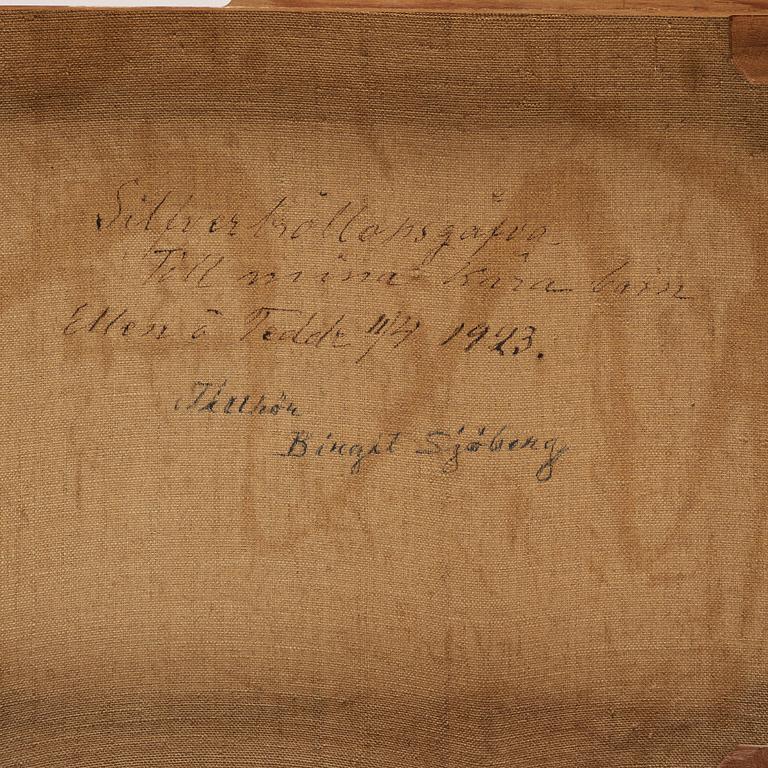 Silfverbröllopsgåfva
Till mina kära barn
Ellen å Tedde 11/4 1923.
Tillhör
Birgit Sjöberg